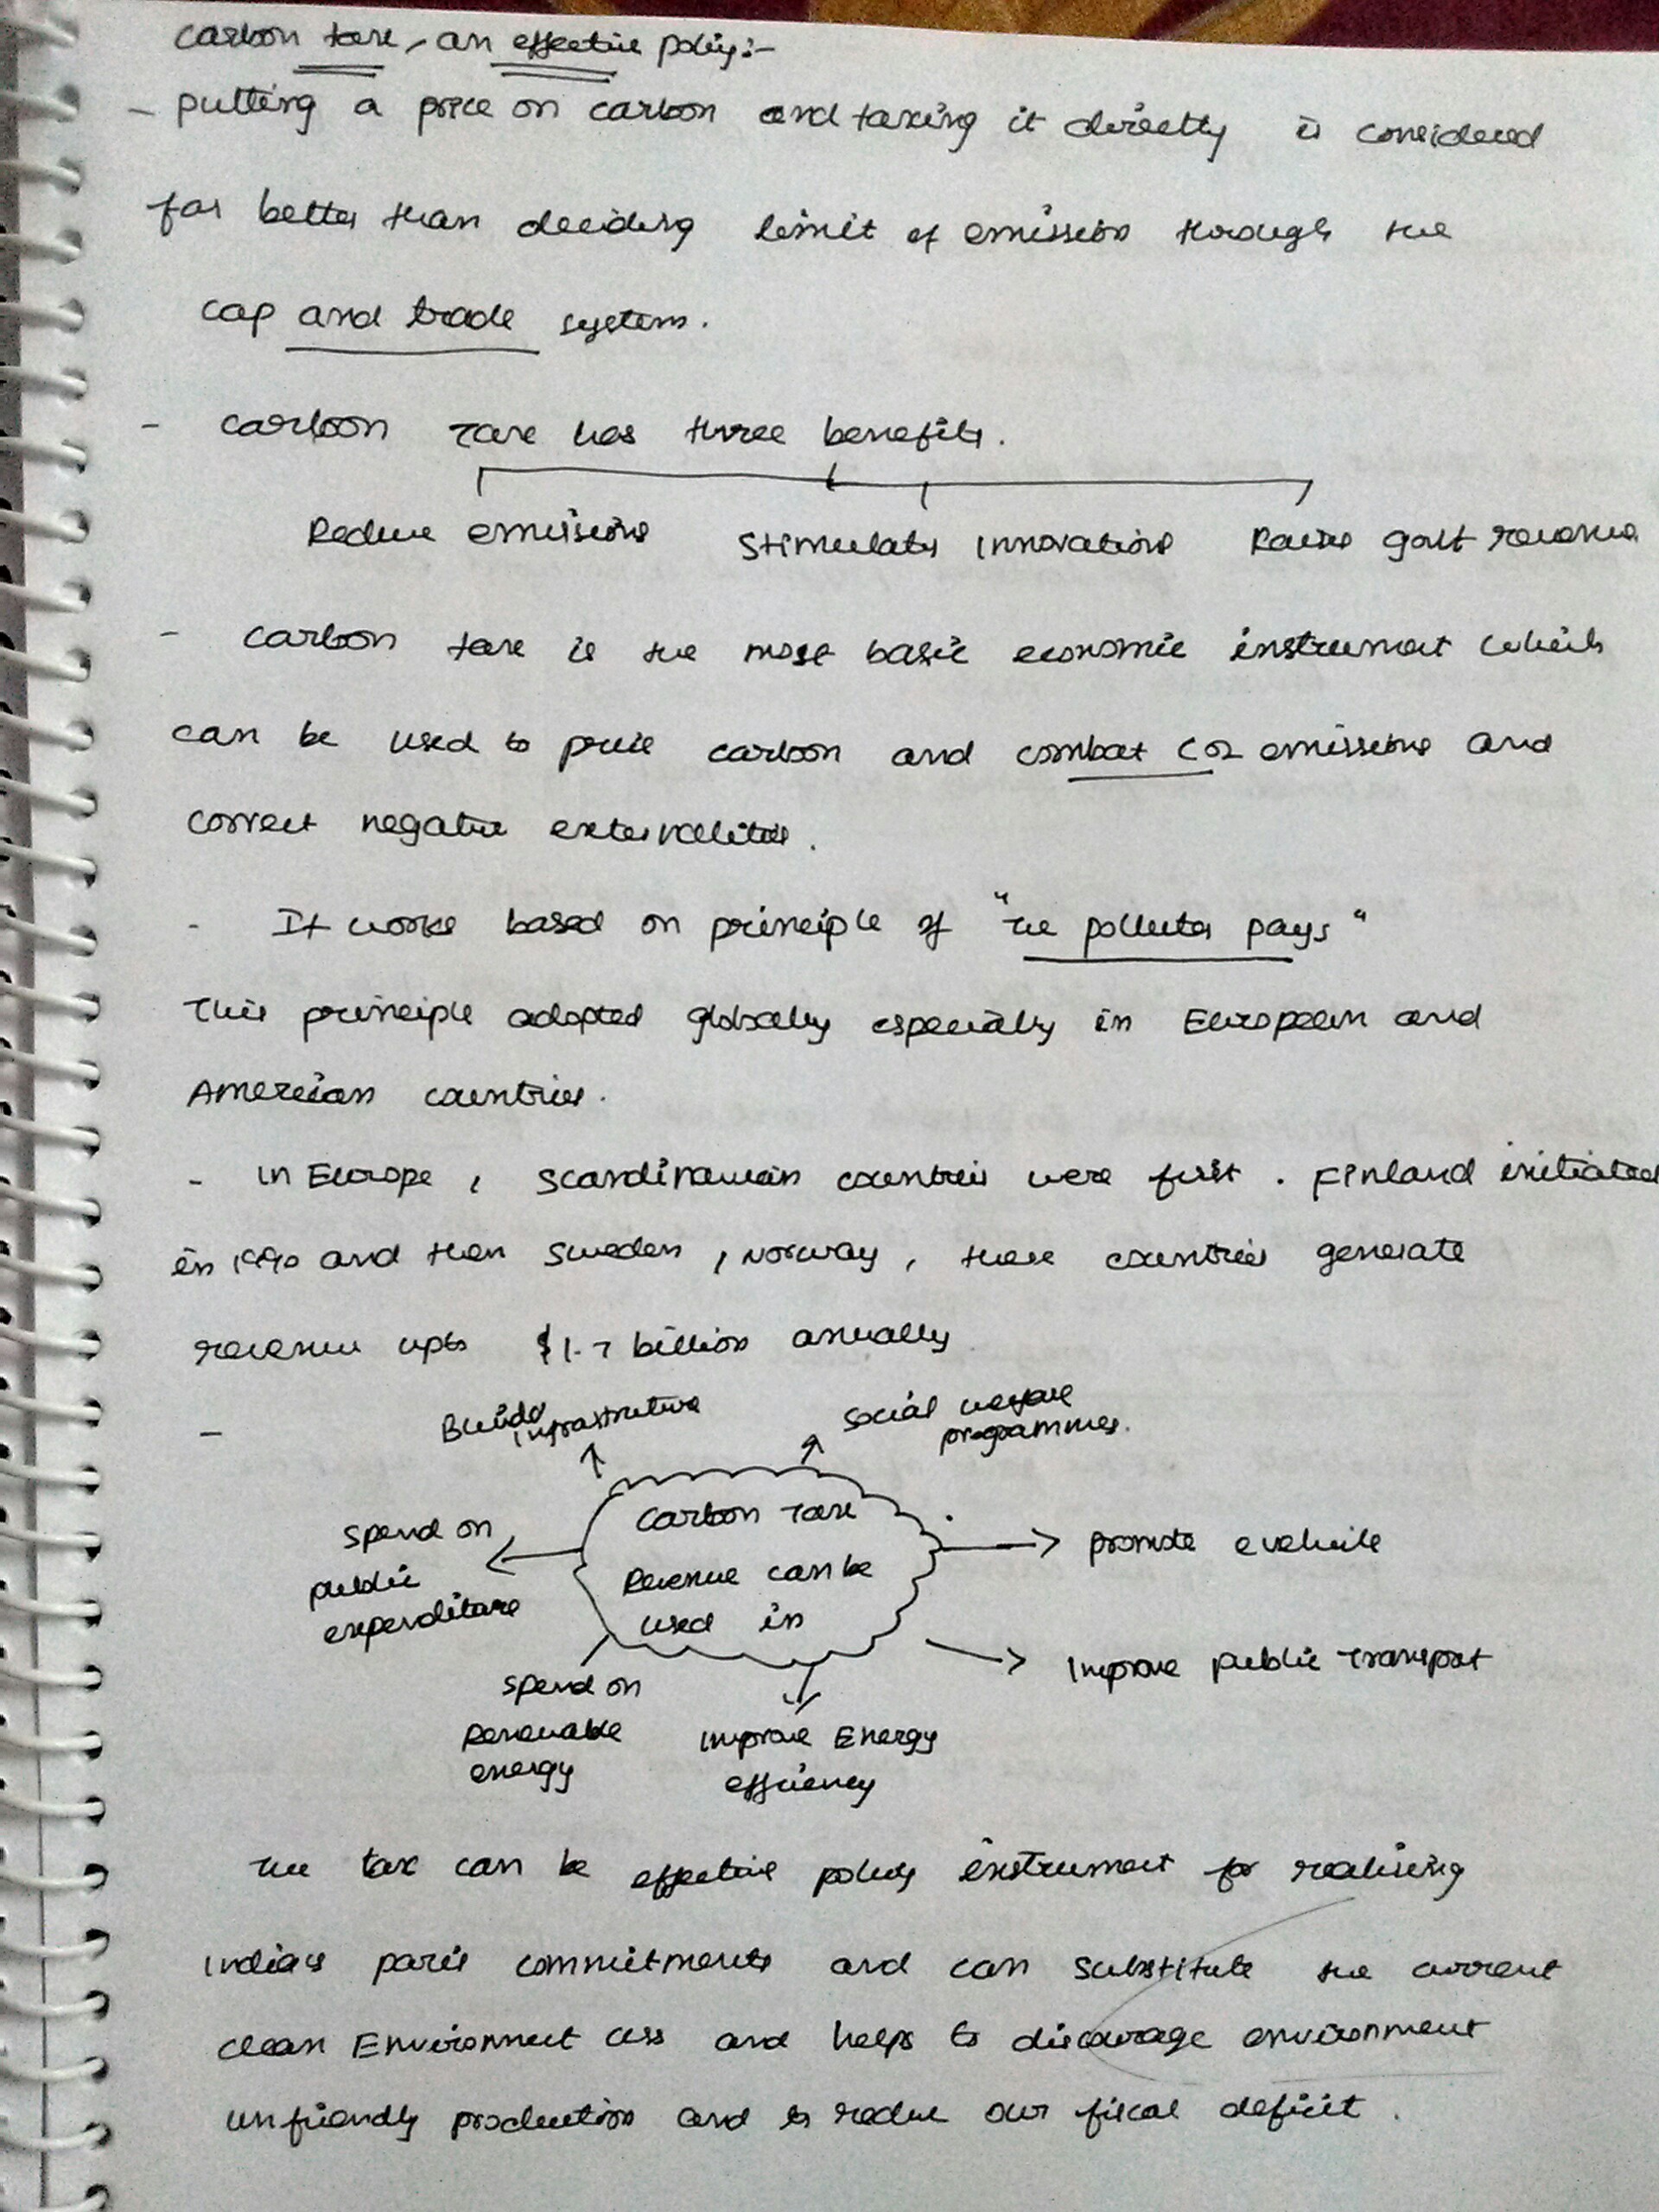 Carbon tax, an effective policy:-
- putting a price on carbon and taxing it directly is considered
far better than deciding limit of emission through the
cap and trade system.
- Carbon Tax has three benefits.
Reduce emissions Stimulate innovations Raise govt revenue
- Carbon tax is the most basic economic instrument which
can be used to price carbon and combat CO2 emissions and
correct negative externalities.
- It works based on principle of "The polluter pays"
This principle adopted globally especially in European and
American countries.
- in Europe, Scandinavian countries were first. Finland initiated
in 1990 and then Sweden, Norway, these countries generate
revenue upto $1.7 billion annually
- Build infrastructure
Social welfare programmes.
Spend on public expenditure
Carbon Tax
Revenue can be
used in
promote evehicle
Improve public transport
Spend on
Renewable
energy
Improve Energy
efficiency
The tax can be effective policy instrument for realising
India's paris commitments and can substitute the current
clean Environment cess and helps to discourage environment
unfriendly production and to reduce our fiscal deficit.